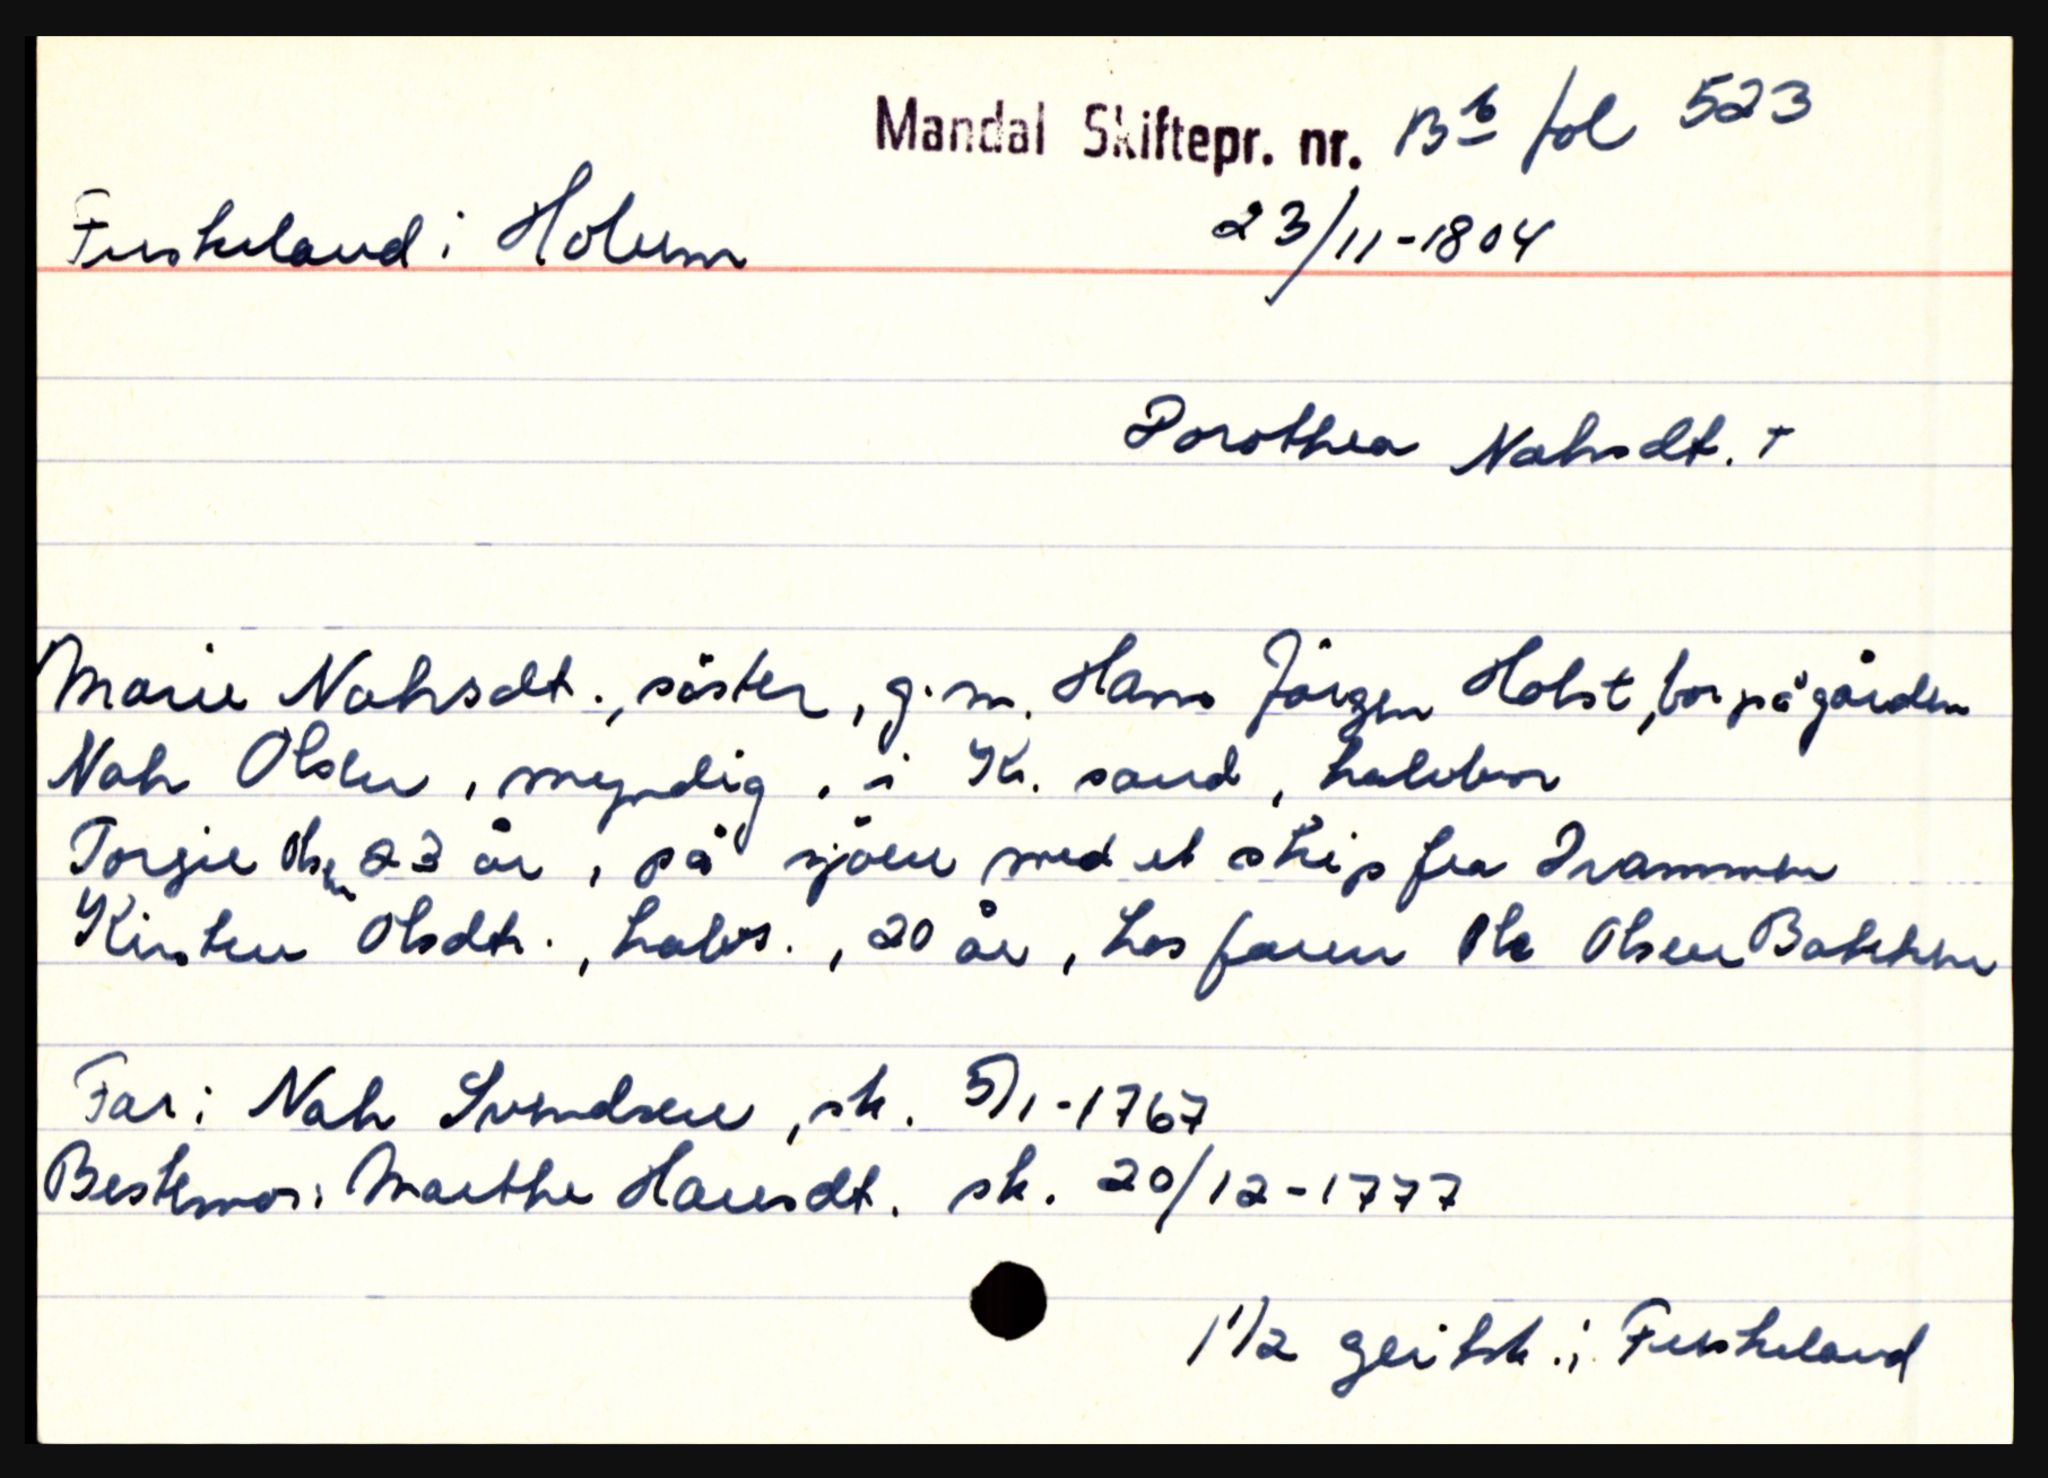 Mandal Skiftepr. nr. B 6 fol 523
Fuskeland i Holum 23/11-1804
Dorothea Nahsdt. +
Marie Nahsdt., söster, g.m. Hans Jörgen Holst, bor på gården
Nah Olsen, myndig, i Kr. sand, halvbror
Torgie Olsen 23 år, på sjöen med et skip fra Drammen
Kirsten Olsdtr., halvs., 20 år, hos faren Ole Olsen Bakken
Far: Nah Svendsen, sk. 5/1-1767
Bestemor: Marthe Hansdt. sk. 20/12-1777
1 1/2 geitsk. i Fuskeland